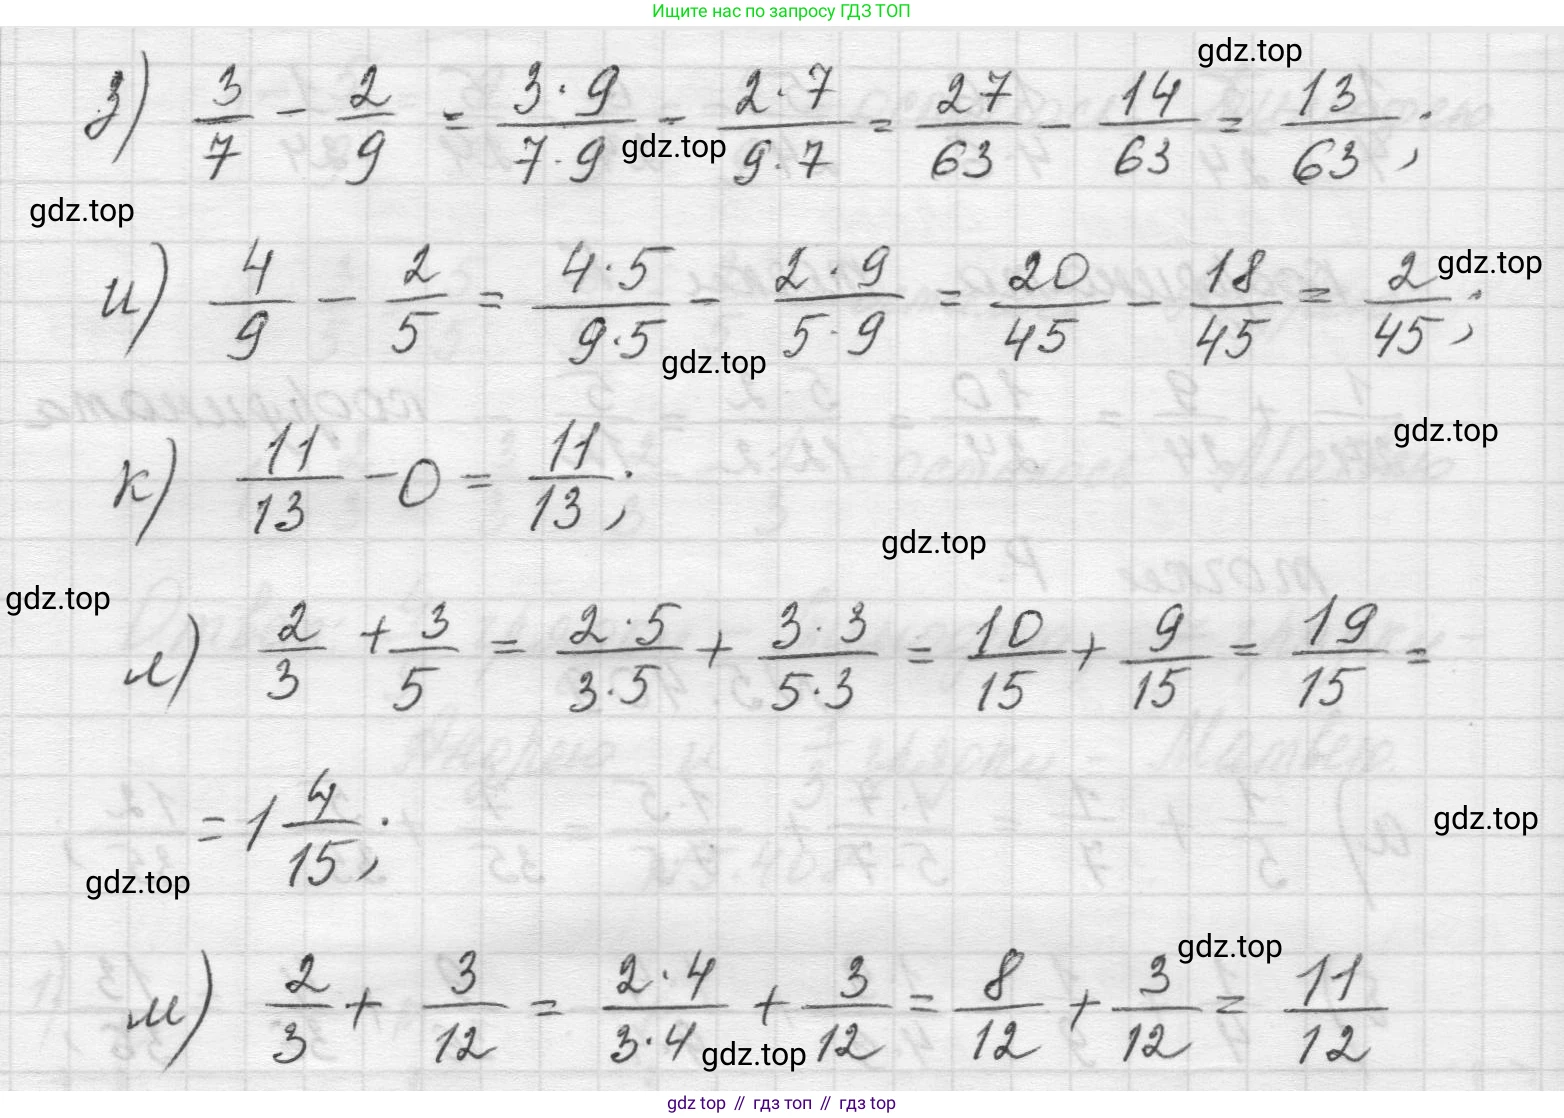 Ищите нас по запросу ГДЗ ТОП
gdz.top
з) 3/7 - 2/9 = 3·9/7·9 - 2·7/9·7 = 27/63 - 14/63 = 13/63;
gdz.top
gdz.top
и) 4/9 - 2/5 = 4·5/9·5 - 2·9/5·9 = 20/45 - 18/45 = 2/45;
gdz.top
gdz.top
к) 11/13 - 0 = 11/13;
gdz.top
gdz.top
gdz.top
л) 2/3 + 3/5 = 2·5/3·5 + 3·3/5·3 = 10/15 + 9/15 = 19/15 =
= 1 4/15;
gdz.top
gdz.top
м) 2/3 + 3/12 = 2·4/3·4 + 3/12 = 8/12 + 3/12 = 11/12
gdz.top
gdz.top
gdz top // гдз топ // gdz top